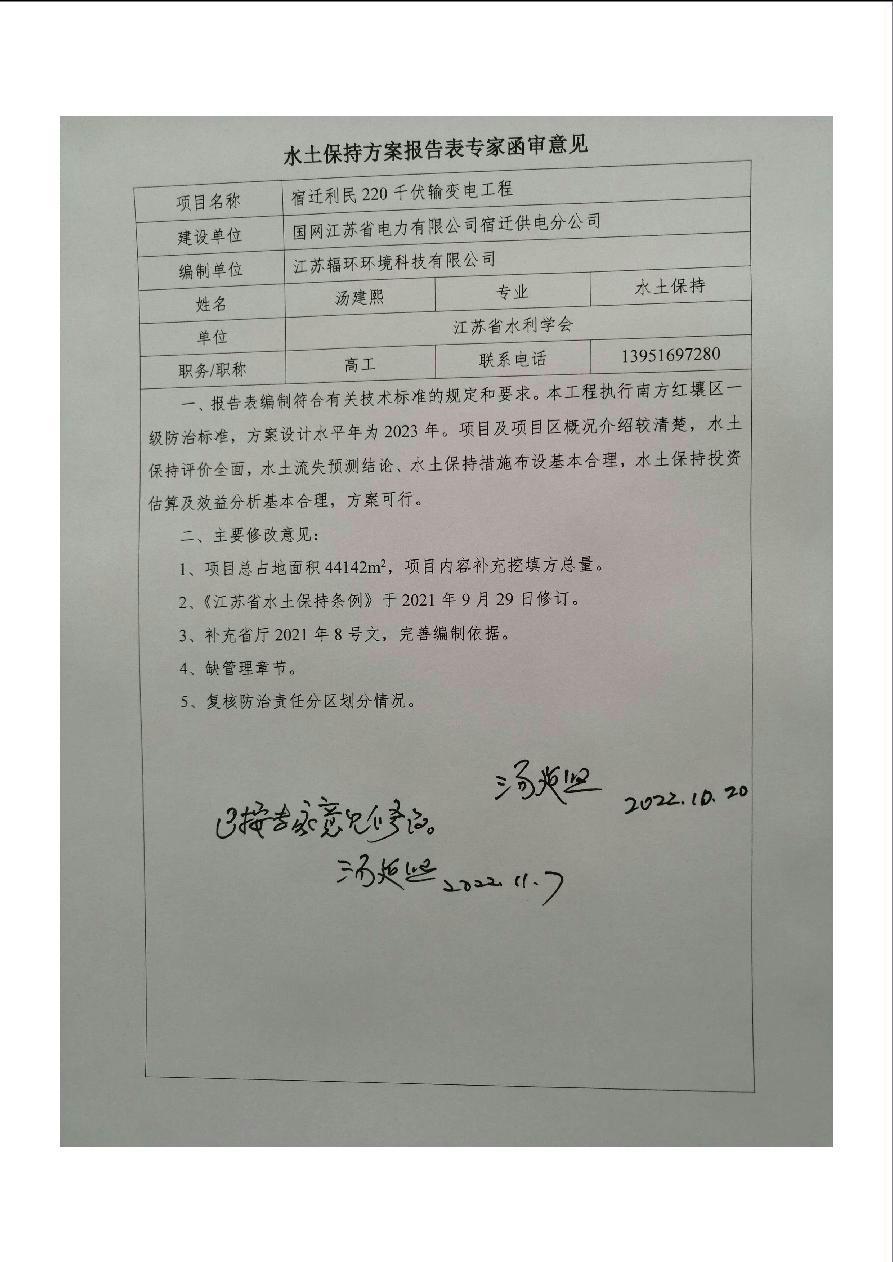 水土保持方案报告表专家函审意见
项目名称 宿迁利民 220 千伏输变电工程
建设单位 国网江苏省电力有限公司宿迁供电分公司
编制单位 江苏辐环环境科技有限公司
姓名 汤建熙 专业 水土保持
单位 江苏省水利学会
职务/职称 高工 联系电话 13951697280
一、报告表编制符合有关技术标准的规定和要求。本工程执行南方红壤区一
级防治标准，方案设计水平年为 2023 年。项目及项目区概况介绍较清楚，水土
保持评价全面，水土流失预测结论、水土保持措施布设基本合理，水土保持投资
估算及效益分析基本合理，方案可行。
二、主要修改意见：
1、项目总占地面积 44142m²，项目内容补充挖填方总量。
2、《江苏省水土保持条例》于 2021 年 9 月 29 日修订。
3、补充省厅 2021 年 8 号文，完善编制依据。
4、缺管理章节。
5、复核防治责任分区划分情况。
汤建熙 2022.10.20
已按专家意见修改。
汤建熙 2022.11.7